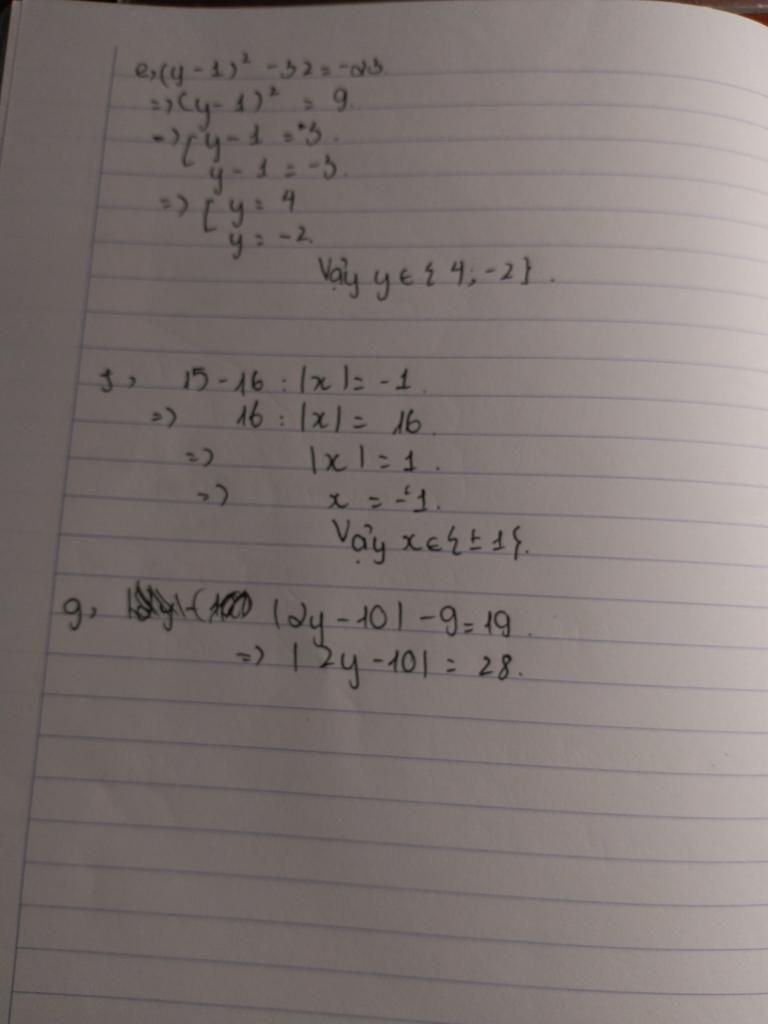 e, (y - 1)² - 32 = -23.
=> (y - 1)² = 9.
=> [ y - 1 = 3.
y - 1 = -3.
=> [ y = 4
y = -2.
Vậy y ∈ { 4; -2 }.
f, 15 - 16 : |x| = -1.
=> 16 : |x| = 16.
=> |x| = 1.
=> x = ±1.
Vậy x ∈ { ± 1 }.
g, |2y - 10| - 9 = 19.
=> | 2y - 10| = 28.